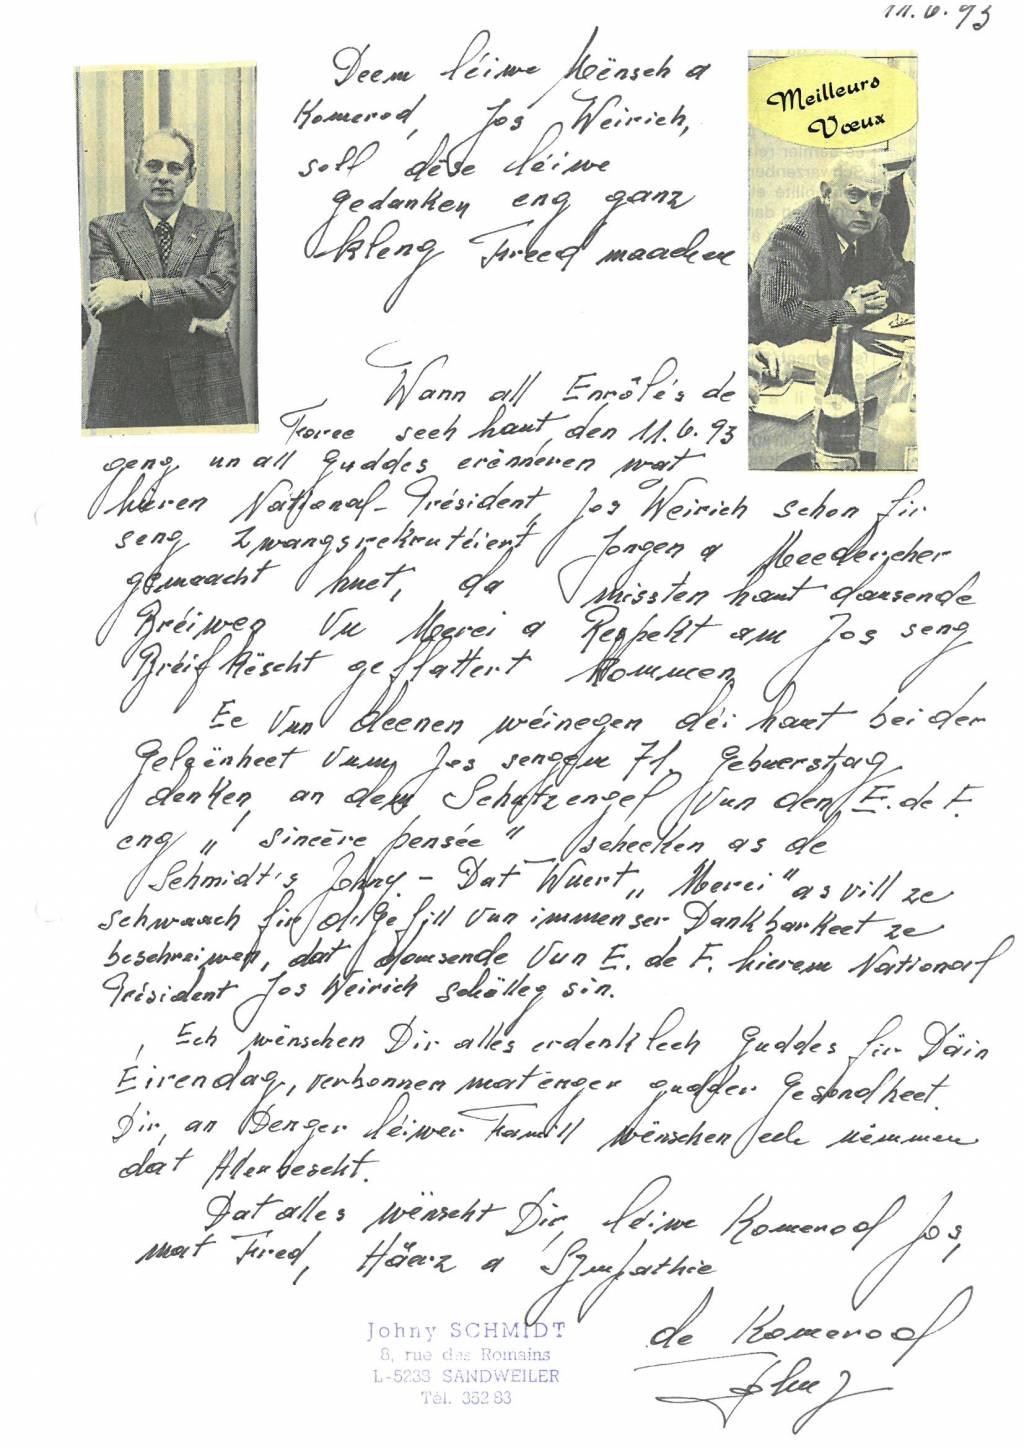 11.6.93
Deem léiwe Mënsch a
Komerod, Jos Weirich,
soll dëse léiwe
gedanken eng ganz
kleng Freed maachen
Meilleurs
Vœux
Wann all Enrôlés de
Force sech haut, den 11.6.93
geng un all Guddes erënneren wat
hieren National-Président, Jos Weirich schon fir
seng "Zwangsrekrutéiert" Jongen a Meedercher
gemaacht huet, da missten haut dausende
Bréiwer vu Merci a Respekt am Jos seng
Bréifkëscht geflattert kommen
Ee vun deenen wéinegen déi haut bei der
Gelgënheet vum Jos sengem 71. Gebuerstag
denken, an dem Schutzengel vun den E. de F.
eng "sincère pensée" schecken as de
Schmidt's Johny. - Dat Wuert "Merci" as vill ze
schwaach fir d'Gefill vun immenser Dankbarkeet ze
beschreiwen, dat dausende vun E. de F. hierem National
Président Jos Weirich schëlleg sin.
Ech wënschen Dir alles erdenklech Guddes fir Däin
Eirendag, verbonnen mat enger gudder Gesondheet.
Dir, an Denger léiwer Famill wënschen ech nëmmen
dat Allerbescht.
Dat alles wënscht Dir, léiwe Komerod Jos,
mat Freed, Häerz a Sympathie
de Komerod
Johny
Johny SCHMIDT
8, rue des Romains
L-5233 SANDWEILER
Tél. 352 83